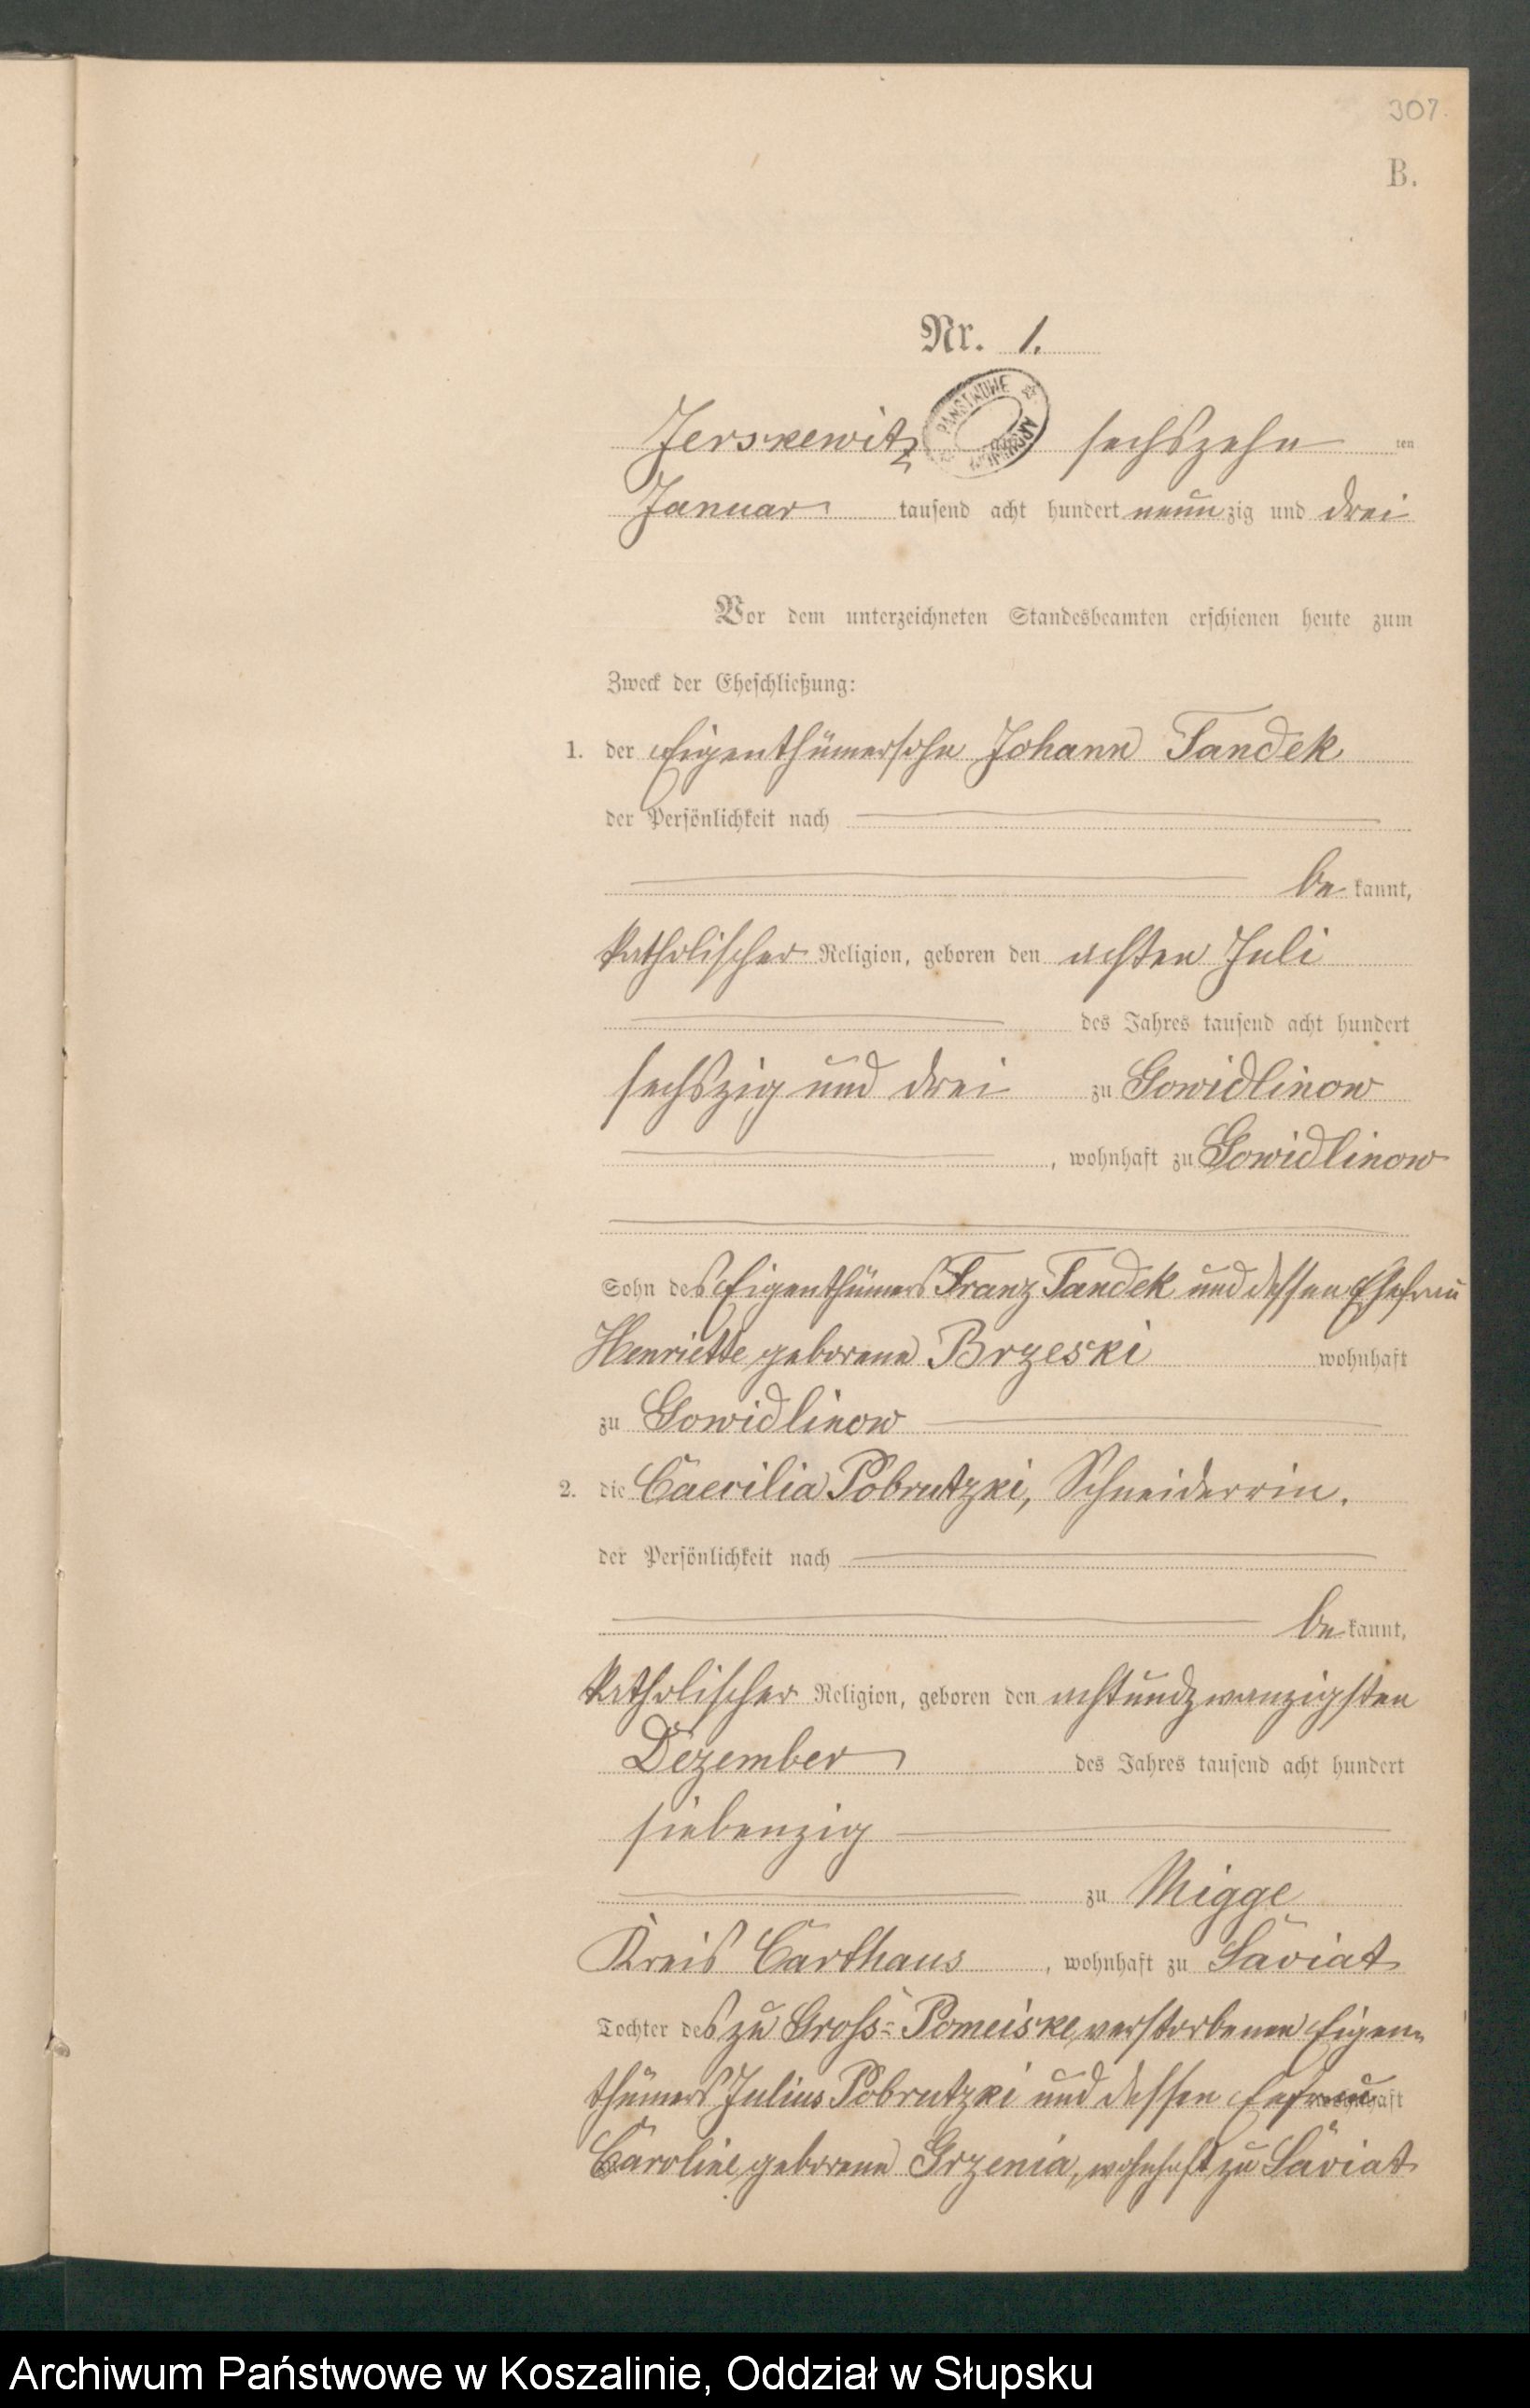 307.
B.
Nr. 1.
Jerskewitz sechszehn ten
Januar tausend acht hundert neunzig und drei
Vor dem unterzeichneten Standesbeamten erschienen heute zum
Zweck der Eheschließung:
1. der Eigenthümersohn Johann Tandek
der Persönlichkeit nach
be kannt,
katholischer Religion, geboren den achten Juli
des Jahres tausend acht hundert
sechszig und drei zu Gowidlinow
, wohnhaft zu Gowidlinow
Sohn des Eigenthümers Franz Tandek und dessen Ehefrau
Henriette geborene Brzeski wohnhaft
zu Gowidlinow
2. die Caecilia Pobrutzki, Schneiderrin.
der Persönlichkeit nach
be kannt,
katholischer Religion, geboren den achtundzwanzigsten
Dezember des Jahres tausend acht hundert
siebenzig
zu Migge
Kreis Carthaus, wohnhaft zu Saviat
Tochter des zu Gross-Pomeiske verstorbenen Eigen-
thümers Julius Pobrutzki und dessen Eefrau wohnhaft
Caroline geborene Grzenia, wohnhaft zu Saviat
Archiwum Państwowe w Koszalinie, Oddział w Słupsku